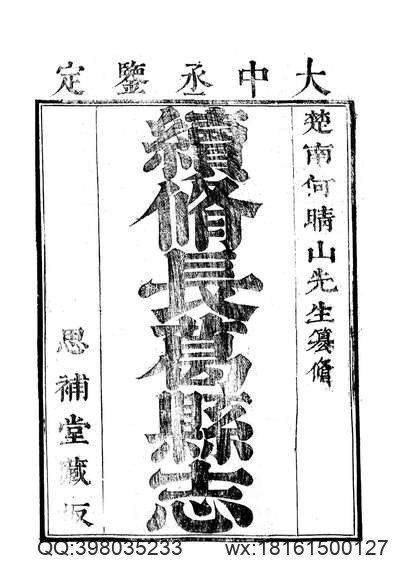 大中丞鑒定
楚南何晴山先生纂脩
續脩長葛縣志
思補堂藏版
QQ:398035233 wx:18161500127